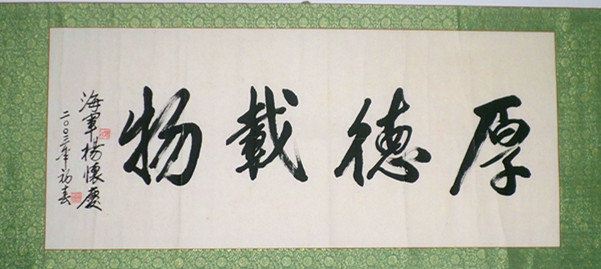 厚德載物
海軍楊懷慶
二〇〇二年初春